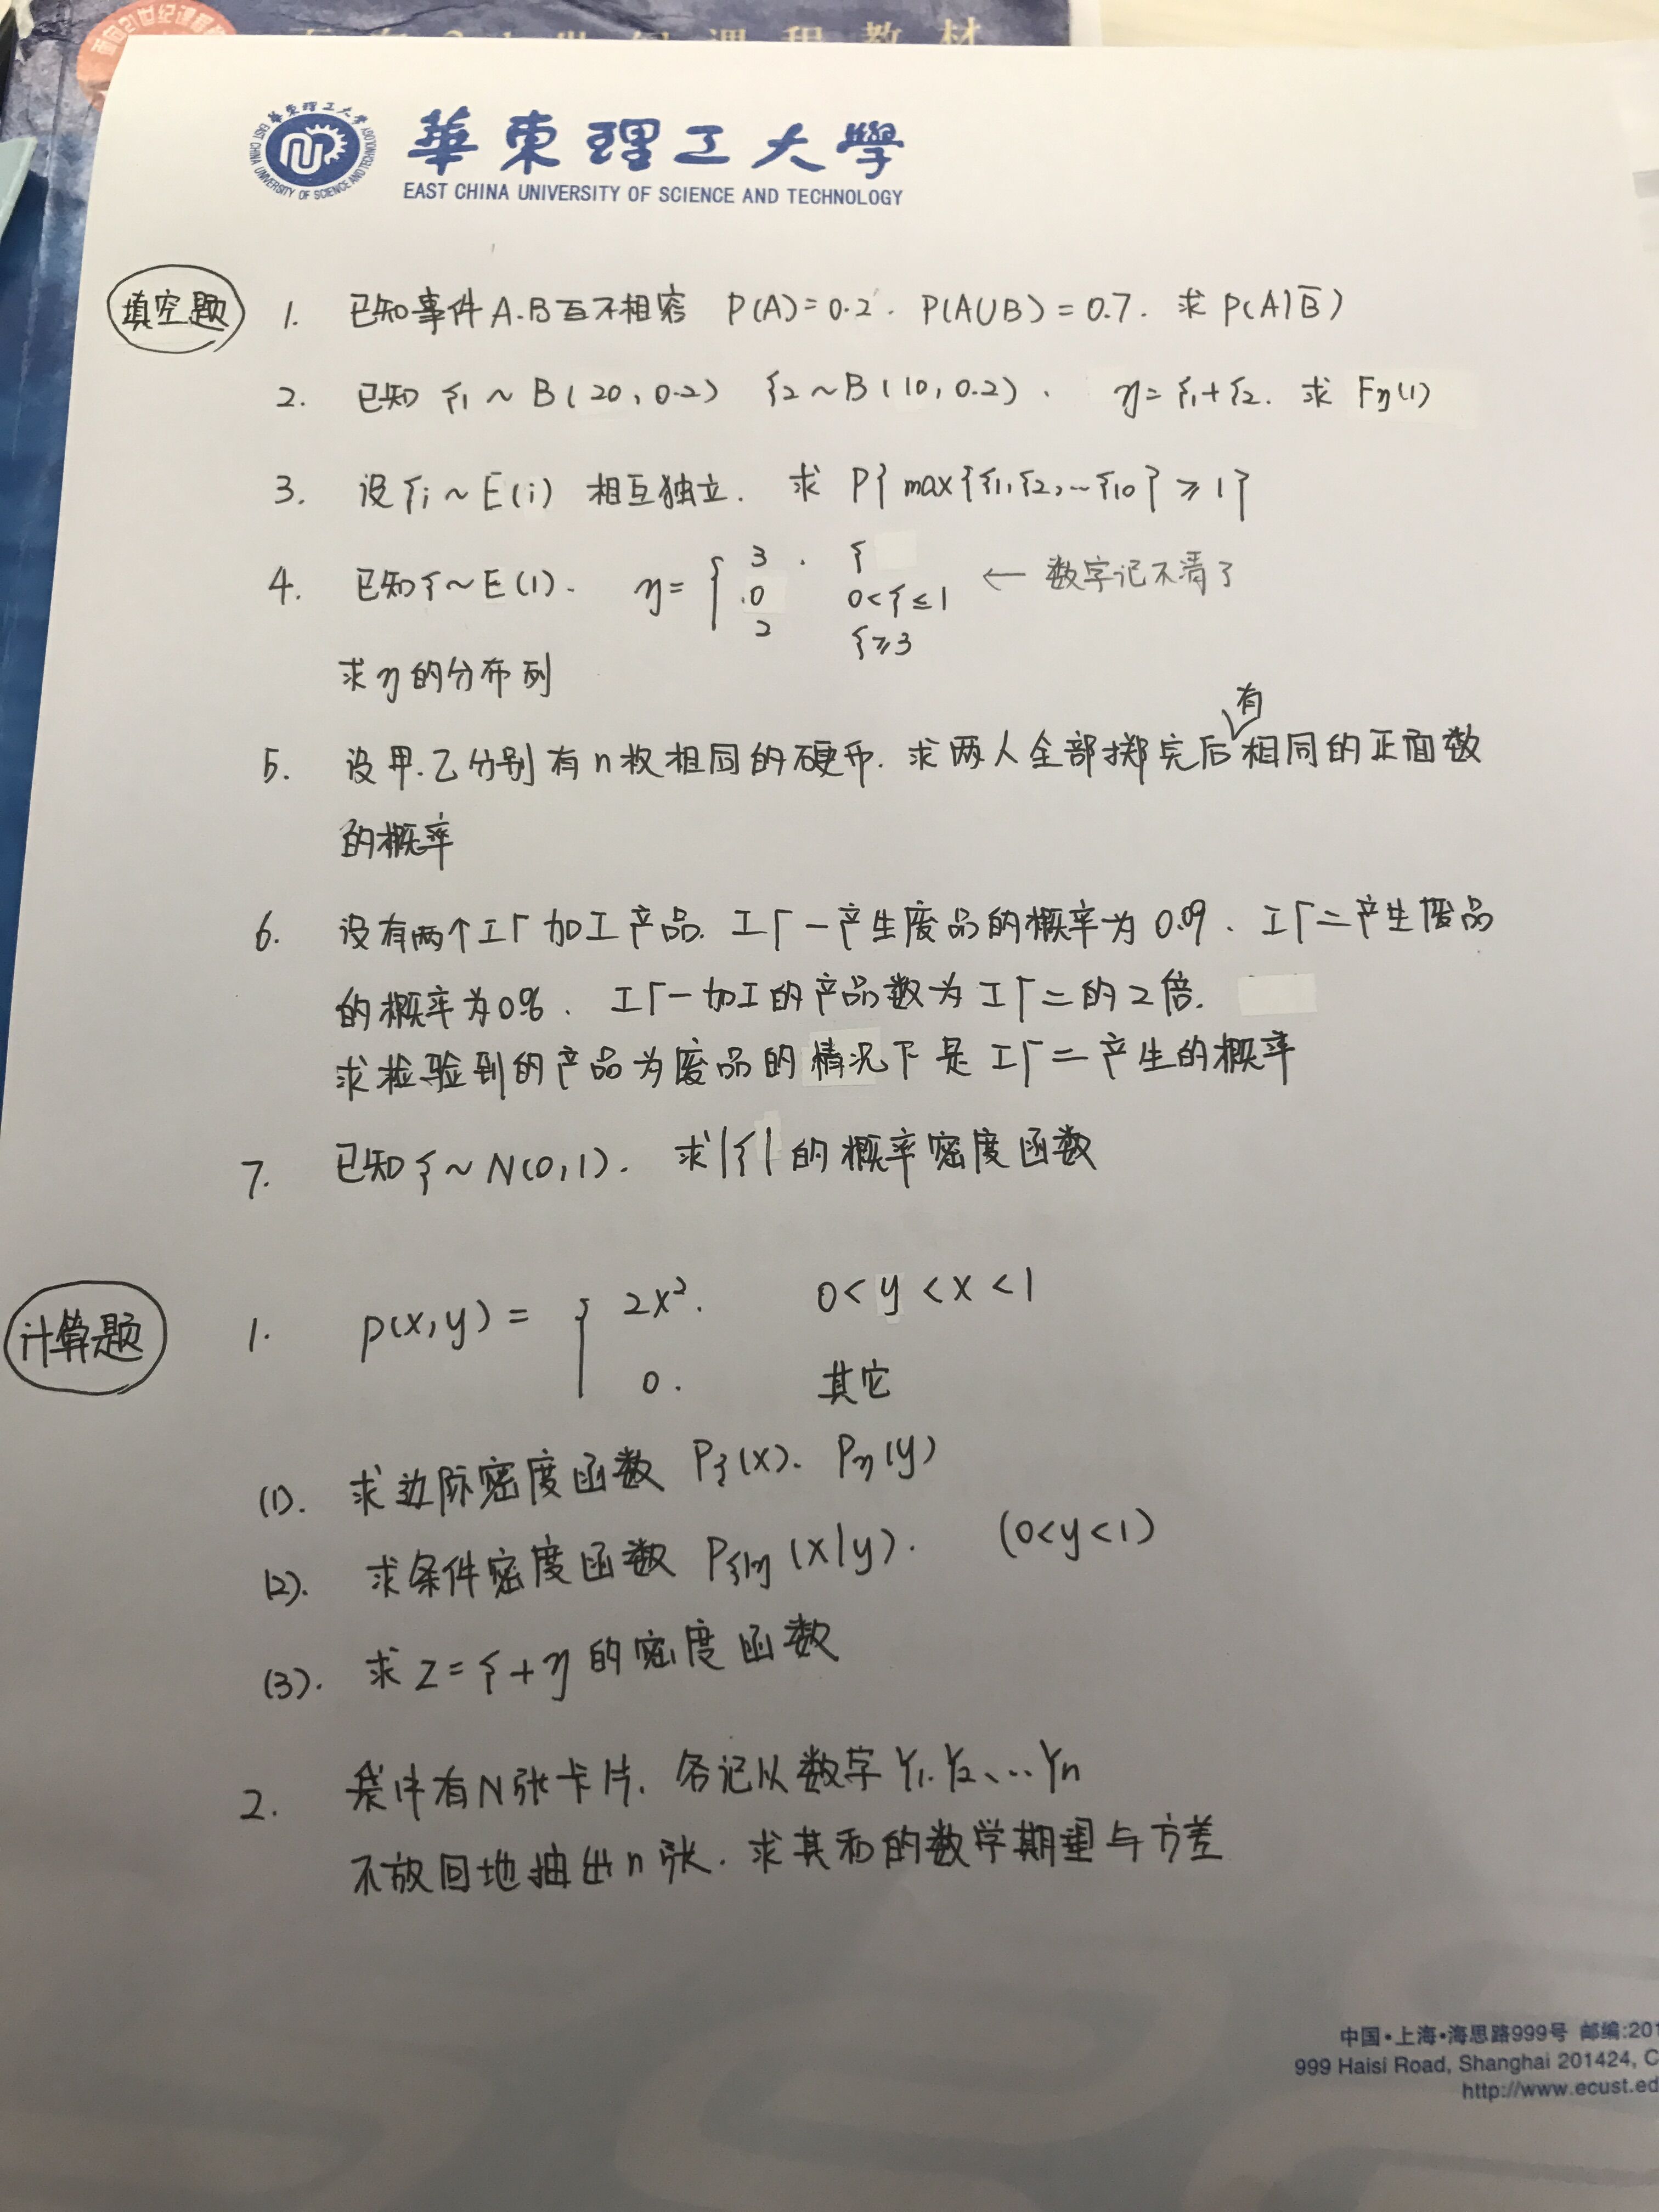 面向21世纪课程教材
華東理工大學
EAST CHINA UNIVERSITY OF SCIENCE AND TECHNOLOGY
填空题
1. 已知事件A.B互不相容 P(A)=0.2. P(A∪B)=0.7. 求 P(A|B̅)
2. 已知 ξ₁~B(20,0.2) ξ₂~B(10,0.2). η=ξ₁+ξ₂. 求 Fη(1)
3. 设ξi~E(i) 相互独立. 求 P{max{ξ₁,ξ₂,…ξ₁₀}≥1}
4. 已知ξ~E(1). η={ 3 . ξ
.0 0<ξ≤1 ← 数字记不清了
2 ξ≥3
求η的分布列
5. 设甲.乙分别有n枚相同的硬币. 求两人全部掷完后有相同的正面数
的概率
6. 设有两个工厂加工产品. 工厂一产生废品的概率为0.09. 工厂二产生废品
的概率为0%. 工厂一加工的产品数为工厂二的2倍.
求检验到的产品为废品的情况下是工厂二产生的概率
7. 已知ξ~N(0,1). 求|ξ|的概率密度函数
计算题
1. p(x,y)={ 2x². 0<y<x<1
0. 其它
(1). 求边际密度函数 Pξ(x). Pη(y)
(2). 求条件密度函数 Pξ|η(x|y). (0<y<1)
(3). 求 Z=ξ+η的密度函数
2. 有N张卡片. 各记以数字Y₁.Y₂、…Yn
不放回地抽出n张. 求其和的数学期望与方差
中国•上海•海思路999号 邮编:201
999 Haisi Road, Shanghai 201424, C
http://www.ecust.ed